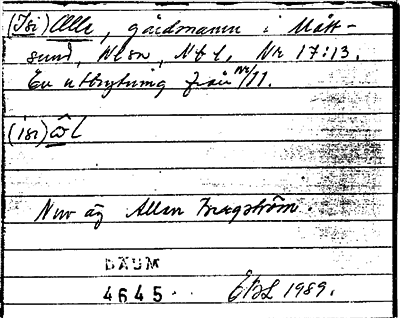 (Isi) Olle, gårdmann i Mått-
sund, Nlsn, Nbl. Nr 17:13.
En utbrytning från nr/11.
(isi) ôl
Nuv äg Allan Bergström.
DAUM
4645. EBL 1989.